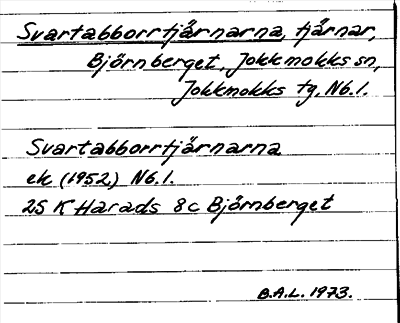 Svartabborrtjärnarna, tjärnar,
Björnberget, Jokkmokks sn,
Jokkmokks tg, Nb.l.
Svartabborrtjärnarna
ek (1952) Nb.l.
25 K Harads 8c Björnberget
B.A.L. 1973.